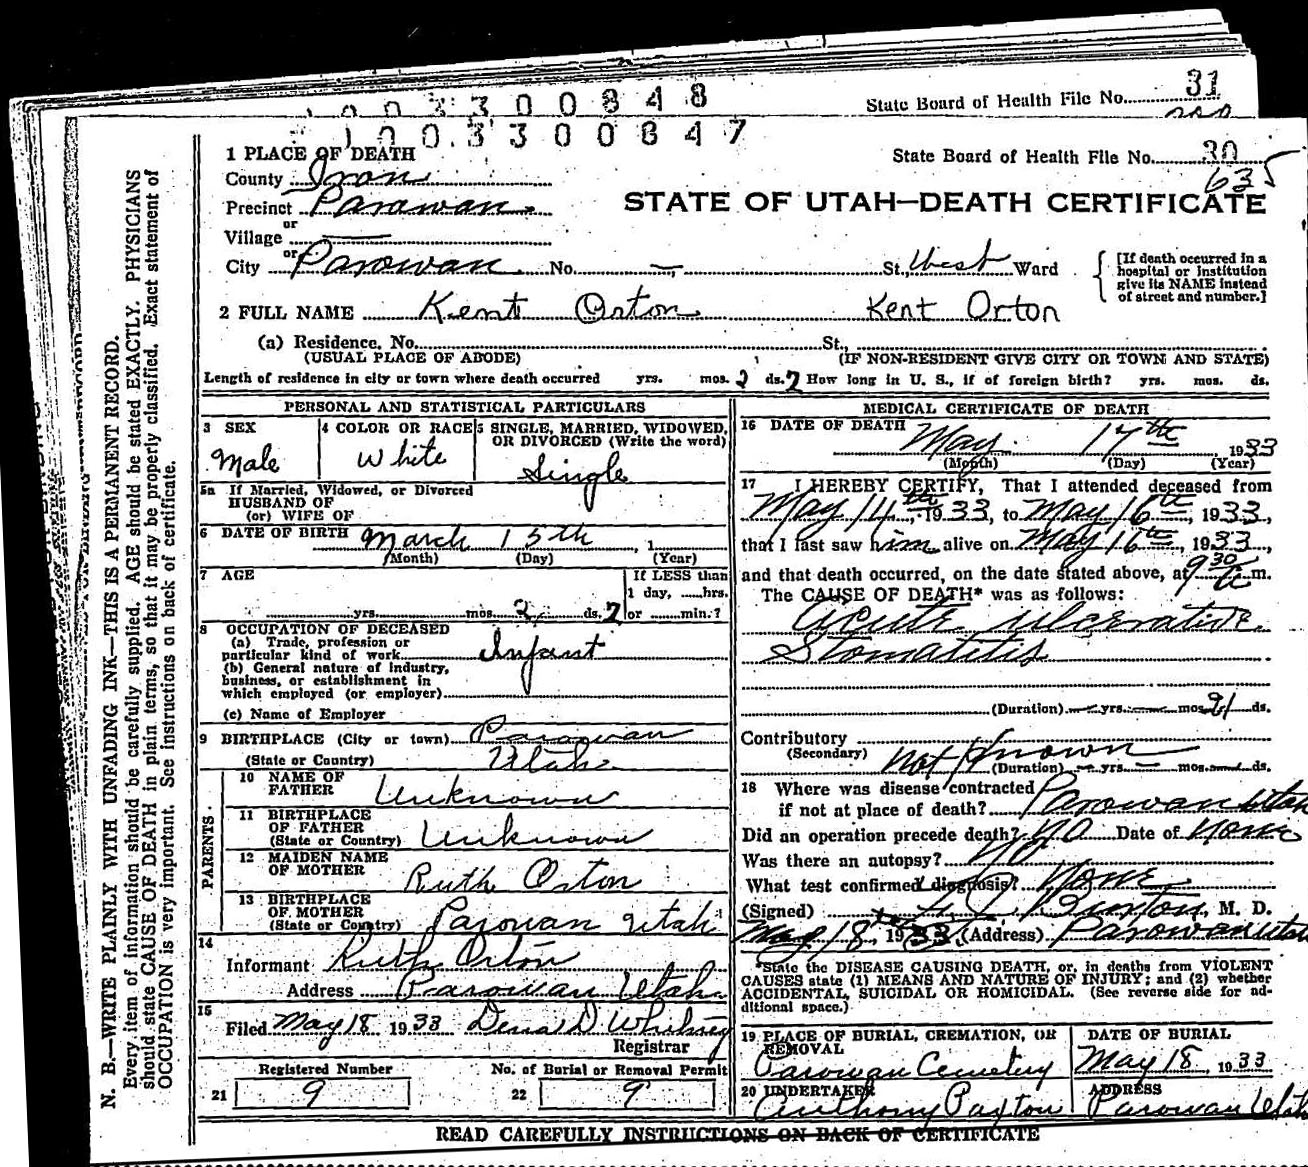 1003300848
State Board of Health File No. 31
1003300847
State Board of Health File No. 30
635
1 PLACE OF DEATH
County Iron
STATE OF UTAH—DEATH CERTIFICATE
Precinct Parowan
or
Village
or
City Parowan No. — St., West Ward
[If death occurred in a hospital or institution give its NAME instead of street and number.]
2 FULL NAME Kent Orton Kent Orton
(a) Residence. No. St.,
(USUAL PLACE OF ABODE) (IF NON-RESIDENT GIVE CITY OR TOWN AND STATE)
Length of residence in city or town where death occurred yrs. mos. 2 ds. 2 How long in U. S., if of foreign birth? yrs. mos. ds.
PERSONAL AND STATISTICAL PARTICULARS
3 SEX
Male
4 COLOR OR RACE
White
5 SINGLE, MARRIED, WIDOWED,
OR DIVORCED (Write the word)
Single
5a If Married, Widowed, or Divorced
HUSBAND OF
(or) WIFE OF
6 DATE OF BIRTH March 15th, 1
(Month) (Day) (Year)
7 AGE
yrs. mos. 2, ds. 2
If LESS than
1 day, hrs.
or min.?
8 OCCUPATION OF DECEASED
(a) Trade, profession or
particular kind of work Infant
(b) General nature of industry,
business, or establishment in
which employed (or employer)
(c) Name of Employer
9 BIRTHPLACE (City or town) Parowan
(State or Country) Utah
PARENTS
10 NAME OF
FATHER Unknown
11 BIRTHPLACE
OF FATHER
(State or Country) Unknown
12 MAIDEN NAME
OF MOTHER Ruth Orton
13 BIRTHPLACE
OF MOTHER
(State or Country) Parowan Utah
14
Informant Ruth Orton
Address Parowan Utah
15
Filed May 18 1933 D Whitney
Registrar
Registered Number
21 9
No. of Burial or Removal Permit
22 9
MEDICAL CERTIFICATE OF DEATH
16 DATE OF DEATH
May 17th 1933
(Month) (Day) (Year)
17 I HEREBY CERTIFY, That I attended deceased from
May 14th, 1933, to May 16th, 1933,
that I last saw him alive on May 16th, 1933,
and that death occurred, on the date stated above, at 9 30 a m.
The CAUSE OF DEATH* was as follows:
Acute ulcerative
Stomatitis
(Duration) — yrs. — mos. ds.
Contributory
(Secondary) Not Known
(Duration) — yrs. — mos. — ds.
18 Where was disease contracted
if not at place of death? Parowan Utah
Did an operation precede death? No Date of None
Was there an autopsy? No
What test confirmed diagnosis? None
(Signed) Burton, M. D.
May 18, 1933 (Address) Parowan Utah
*State the DISEASE CAUSING DEATH, or, in deaths from VIOLENT
CAUSES state (1) MEANS AND NATURE OF INJURY; and (2) whether
ACCIDENTAL, SUICIDAL OR HOMICIDAL. (See reverse side for ad-
ditional space.)
19 PLACE OF BURIAL, CREMATION, OR
REMOVAL
Parowan Cemetery
DATE OF BURIAL
May 18, 1933
20 UNDERTAKER
Anthony Paxton
ADDRESS
Parowan Utah
READ CAREFULLY INSTRUCTIONS ON BACK OF CERTIFICATE
N. B.—WRITE PLAINLY WITH UNFADING INK—THIS IS A PERMANENT RECORD.
Every item of information should be carefully supplied. AGE should be stated EXACTLY. PHYSICIANS
should state CAUSE OF DEATH in plain terms, so that it may be properly classified. Exact statement of
OCCUPATION is very important. See instructions on back of certificate.